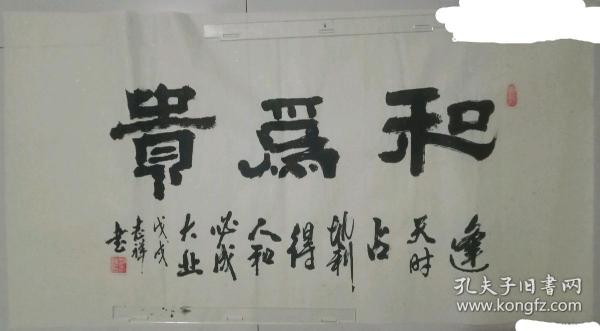 和為貴
逢
天时
占
地利
得
人和
必成
大业
戊戌
志祥
书
孔夫子旧书网
www.kongfz.com